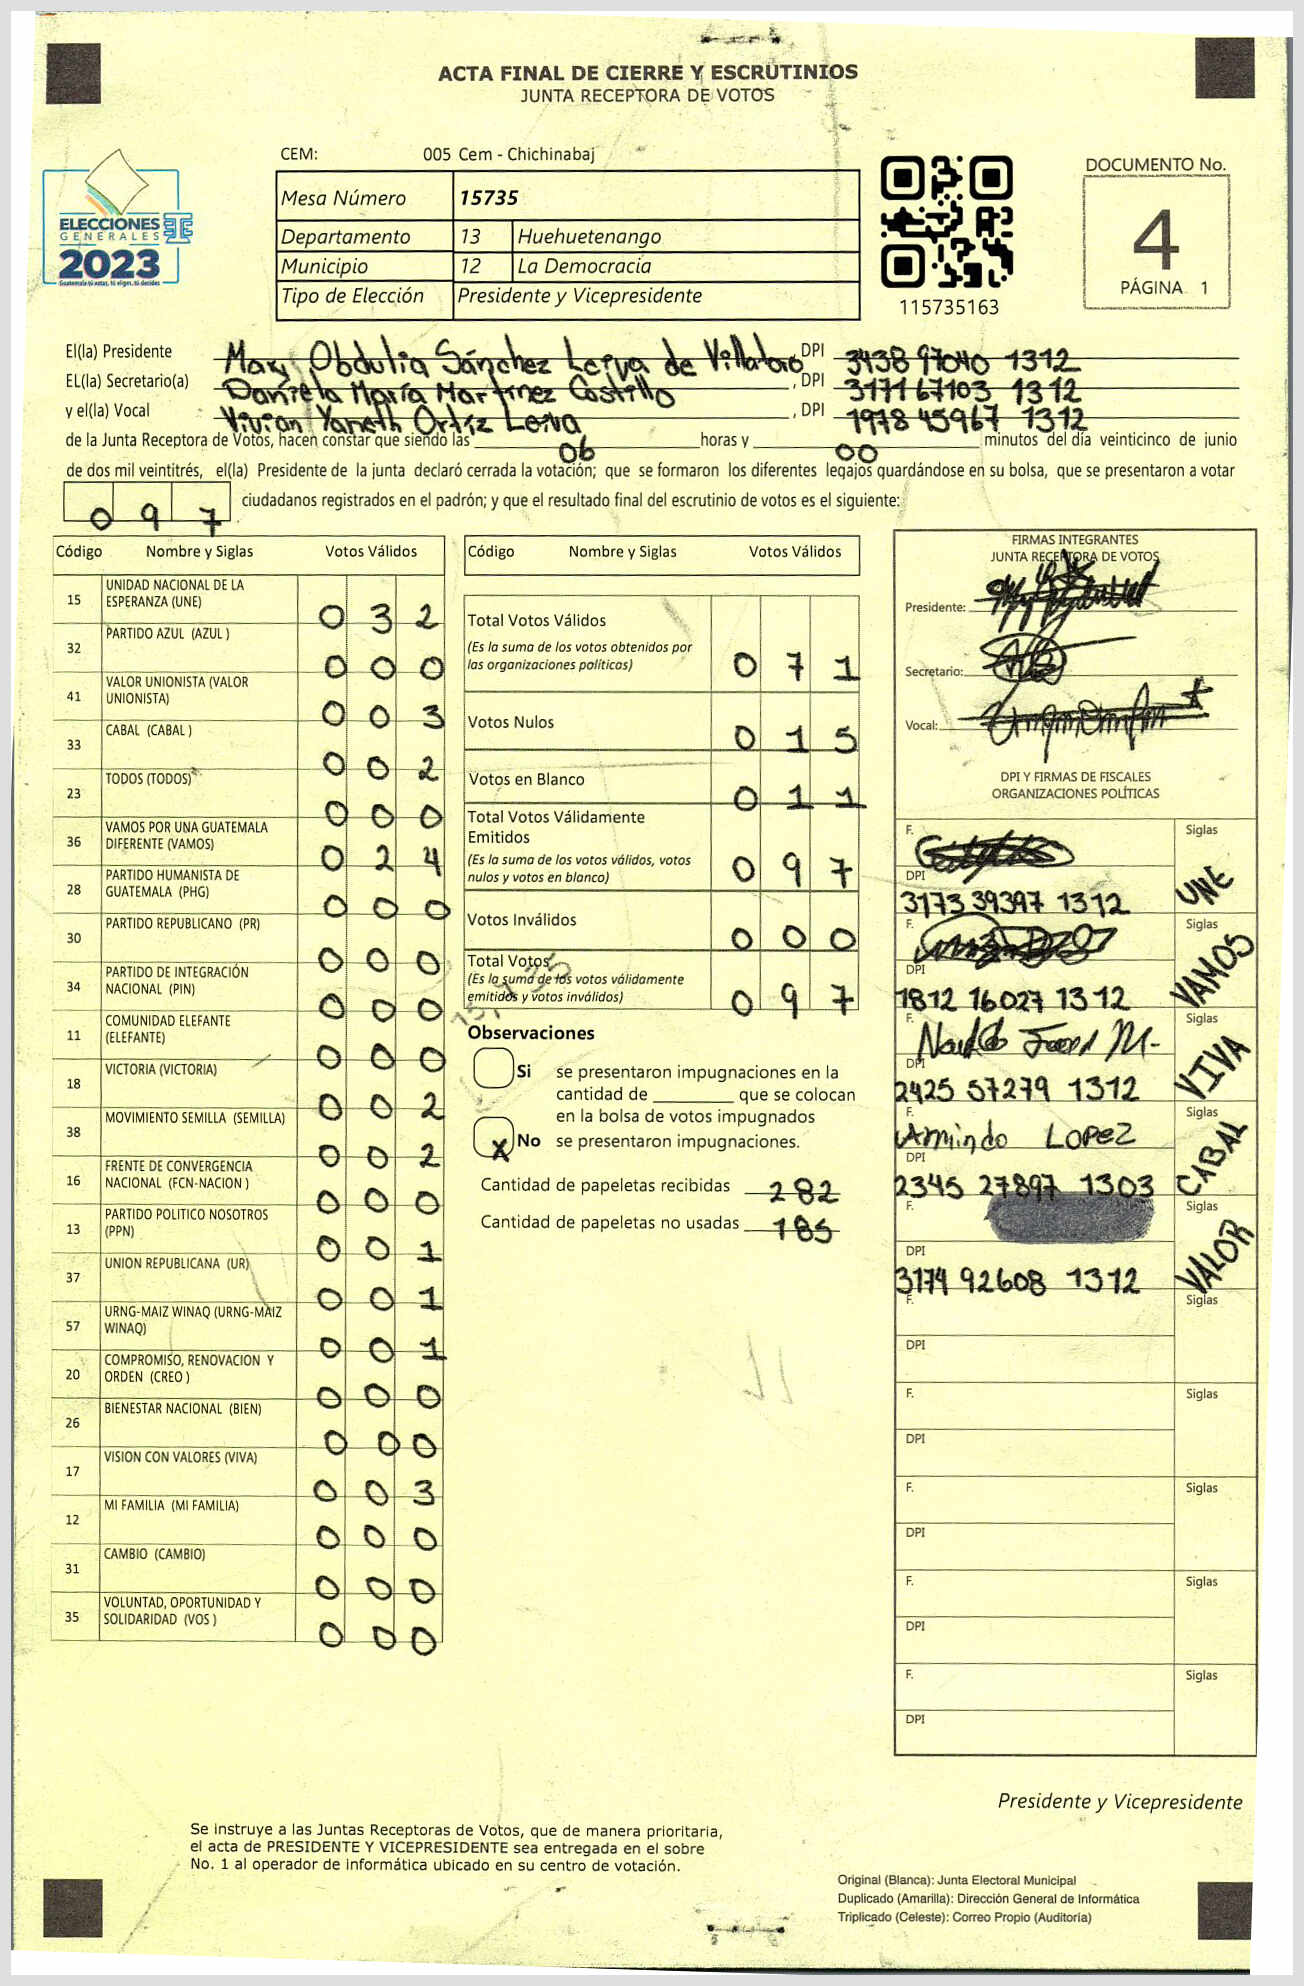 ACTA FINAL DE CIERRE Y ESCRUTINIOS
JUNTA RECEPTORA DE VOTOS
CEM: 005 Cem - Chichinabaj
ELECCIONES
GENERALES
2023
Guatemala tú votas, tú eliges, tú decides
Mesa Número 15735
Departamento 13 Huehuetenango
Municipio 12 La Democracia
Tipo de Elección Presidente y Vicepresidente
115735163
DOCUMENTO No.
4
PÁGINA 1
El(la) Presidente Mary Obdulia Sánchez Leiva de Villatoro DPI 3438 97040 1312
EL(la) Secretario(a) Daniela María Martínez Castillo , DPI 3171 67103 1312
y el(la) Vocal Vivian Yaneth Ortíz Leiva , DPI 1978 45967 1312
de la Junta Receptora de Votos, hacen constar que siendo las 06 horas y 00 minutos del día veinticinco de junio
de dos mil veintitrés, el(la) Presidente de la junta declaró cerrada la votación; que se formaron los diferentes legajos guardándose en su bolsa, que se presentaron a votar
0 9 7 ciudadanos registrados en el padrón; y que el resultado final del escrutinio de votos es el siguiente:
Código Nombre y Siglas Votos Válidos
15 UNIDAD NACIONAL DE LA
ESPERANZA (UNE) 0 3 2
32 PARTIDO AZUL (AZUL ) 0 0 0
41 VALOR UNIONISTA (VALOR
UNIONISTA) 0 0 3
33 CABAL (CABAL ) 0 0 2
23 TODOS (TODOS) 0 0 0
36 VAMOS POR UNA GUATEMALA
DIFERENTE (VAMOS) 0 2 4
28 PARTIDO HUMANISTA DE
GUATEMALA (PHG) 0 0 0
30 PARTIDO REPUBLICANO (PR) 0 0 0
34 PARTIDO DE INTEGRACIÓN
NACIONAL (PIN) 0 0 0
11 COMUNIDAD ELEFANTE
(ELEFANTE) 0 0 0
18 VICTORIA (VICTORIA) 0 0 2
38 MOVIMIENTO SEMILLA (SEMILLA) 0 0 2
16 FRENTE DE CONVERGENCIA
NACIONAL (FCN-NACION ) 0 0 0
13 PARTIDO POLITICO NOSOTROS
(PPN) 0 0 1
37 UNION REPUBLICANA (UR) 0 0 1
57 URNG-MAIZ WINAQ (URNG-MAIZ
WINAQ) 0 0 1
20 COMPROMISO, RENOVACION Y
ORDEN (CREO ) 0 0 0
26 BIENESTAR NACIONAL (BIEN) 0 0 0
17 VISION CON VALORES (VIVA) 0 0 3
12 MI FAMILIA (MI FAMILIA) 0 0 0
31 CAMBIO (CAMBIO) 0 0 0
35 VOLUNTAD, OPORTUNIDAD Y
SOLIDARIDAD (VOS ) 0 0 0
Código Nombre y Siglas Votos Válidos
Total Votos Válidos
(Es la suma de los votos obtenidos por
las organizaciones políticas) 0 7 1
Votos Nulos 0 1 5
Votos en Blanco 0 1 1
Total Votos Válidamente
Emitidos
(Es la suma de los votos válidos, votos
nulos y votos en blanco) 0 9 7
Votos Inválidos 0 0 0
Total Votos
(Es la suma de los votos válidamente
emitidos y votos inválidos) 0 9 7
15,735
Observaciones
Si se presentaron impugnaciones en la
cantidad de ________ que se colocan
en la bolsa de votos impugnados
X No se presentaron impugnaciones.
Cantidad de papeletas recibidas 282
Cantidad de papeletas no usadas 185
FIRMAS INTEGRANTES
JUNTA RECEPTORA DE VOTOS
Presidente:
Secretario:
Vocal:
DPI Y FIRMAS DE FISCALES
ORGANIZACIONES POLÍTICAS
F. Siglas
DPI 3173 39397 1312 UNE
F. Siglas
DPI 1812 16027 1312 VAMOS
F. Siglas
DPI 2425 57279 1312 VIVA
F. Armindo LOPEZ Siglas
DPI 2345 27897 1303 CABAL
F. Siglas
DPI 3174 92608 1312 VALOR
F. Siglas
DPI
F. Siglas
DPI
F. Siglas
DPI
F. Siglas
DPI
F. Siglas
DPI
Presidente y Vicepresidente
Se instruye a las Juntas Receptoras de Votos, que de manera prioritaria,
el acta de PRESIDENTE Y VICEPRESIDENTE sea entregada en el sobre
No. 1 al operador de informática ubicado en su centro de votación.
Original (Blanca): Junta Electoral Municipal
Duplicado (Amarilla): Dirección General de Informática
Triplicado (Celeste): Correo Propio (Auditoría)